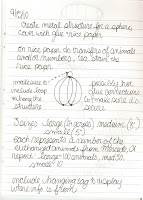 9/8/10
Create metal structure for a sphere,
cover with glue + rice paper
on rice paper do transfer of animals
and/or numbers, tea stain the
rice paper
make sure to
include loop
the
structure
possibly hot
glue connections
to make sure its
secure
3 sizes large (24 acres) medium (8")
small (5")
each represents a number of the
euthanized animals from
repeat large = 100 animals, med. 50,
small = 10
include hanging tag to display
where info is from